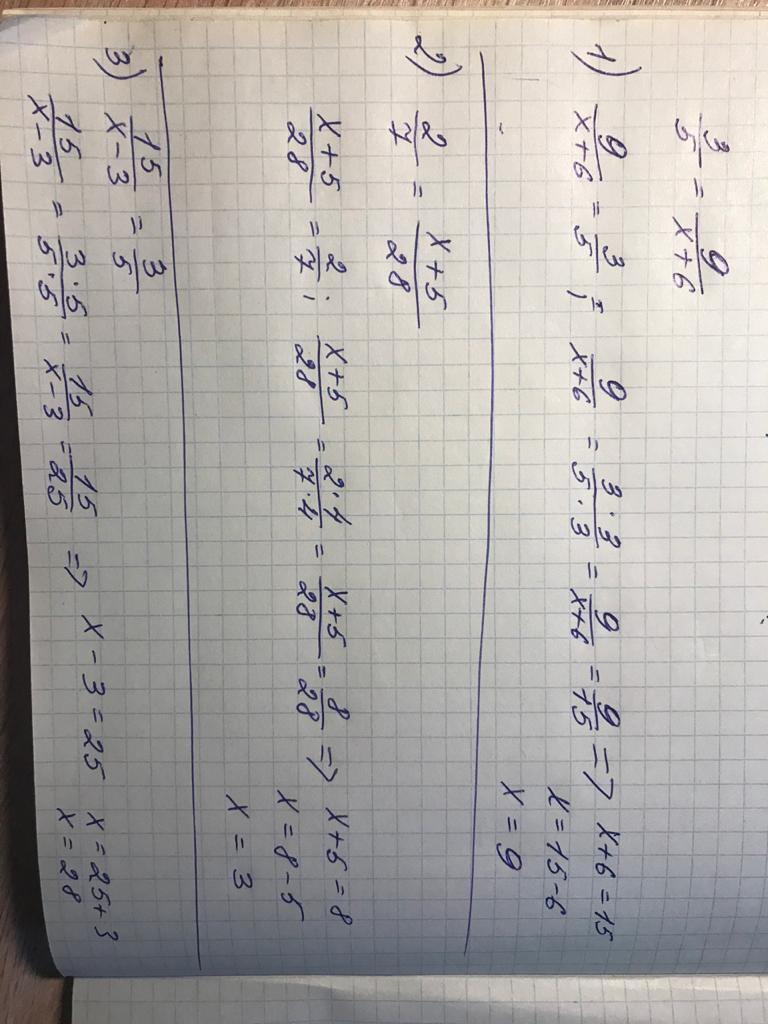 3/5 = 9/(x+6)
1) 9/(x+6) = 3/5 ; 9/(x+6) = (3·3)/(5·3) = 9/(x+6) = 9/15 => x+6=15
x=15-6
x=9
2) 2/7 = (x+5)/28
(x+5)/28 = 2/7 ; (x+5)/28 = (2·4)/(7·4) = (x+5)/28 = 8/28 => x+5=8
x=8-5
x=3
3) 15/(x-3) = 3/5
15/(x-3) = (3·5)/(5·5) = 15/(x-3) = 15/25 => x-3=25 x=25+3
x=28